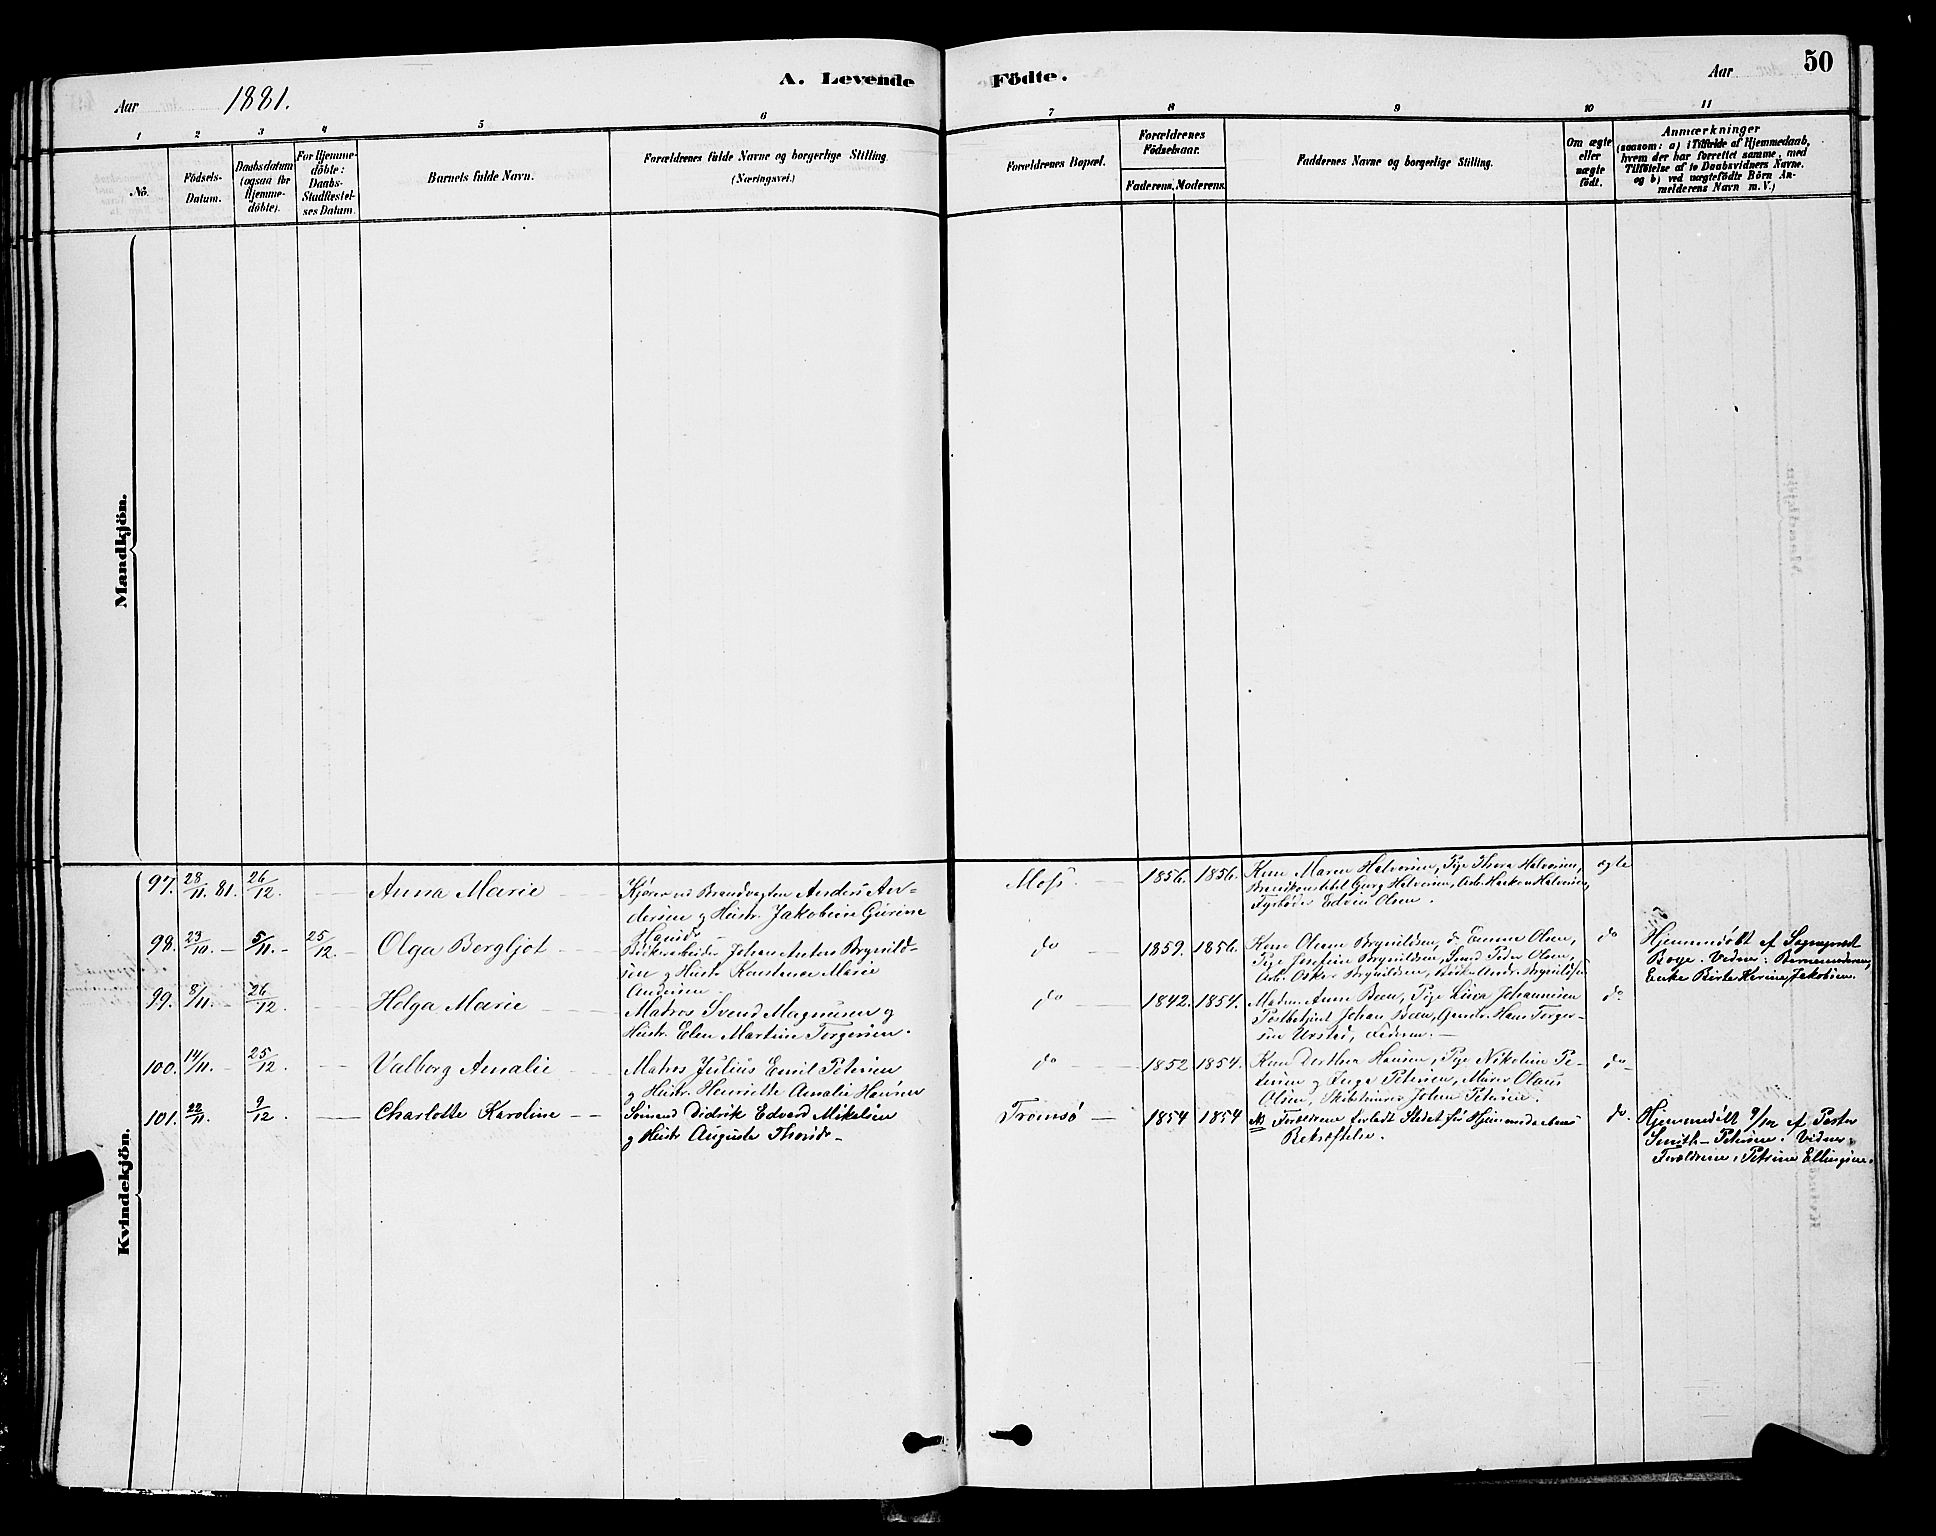 A. Levende Födte.
50
Aar 1881.
Aar
1 2 3 4 5 6 7 8 9 10 11
No.
Födsels-Datum.
Daabsdatum (ogsaa for Hjemme-döbte).
For Hjemme-döbte: Daabs-Stadfæstel-ses Datum.
Barnets fulde Navn.
Forældrenes fulde Navne og borgerlige Stilling (Næringsvei.)
Forældrenes Bopæl.
Forældrenes Födselsaar.
Faderens. Moderens.
Faddernes Navne og borgerlige Stilling.
Om ægte eller uægte födt.
Anmærkninger
(saasom: a) i Tilfælde af Hjemmedaab,
hvem der har forrettet samme, med
Tilföielse af to Daabsvidners Navne.
og b) ved uægtefödte Börn An-
melderens Navn m.V.)
Mandkjön.
Kvindekjön.
97. 28/11. 81. 26/12. Anna Marie
Brandvagten Anders An-
dersen og Hustr. Jakobine Gurine
Moss. 1856. 1856.
Kone Maren Halvorsen, Pige Thora Halvorsen,
Brandkonstabel Georg Halvorsen, Arb. Haakon Halvorsen,
Fyrböder Edvin Olsen.
ægte
98. 23/10. 5/11. 25/12. Olga Bergljot
Johan Anton Brynild-
sen og Hustr. Konstanse Marie
Andersen.
do 1859. 1856.
Kone Oleane Brynildsen, do Emma Olsen,
Pige Josefine Brynildsen, Smed Peder Olsen,
Arb. Oskar Brynildsen,
do
Hjemmedöbt af Sogneprest
Boye. Vidner:
Enke Birte Karine Jakobsen.
99. 8/11. 26/12. Helga Marie
Matros Svend Magnusen og
Hustr. Elen Martine Torgersen.
do 1842. 1854.
Anne Boen, Pige Lina Johannesen
Postbetjent Johan Boen, Hans Torger-
sen Urstad, Faderen.
do
100. 14/11. 25/12. Valborg Amalie
Matros Julius Emil Petersen
og Hustr. Henriette Amalie Hansen
do 1852 1854.
Kone Dorthea Hansen, Pige Nikoline Pe-
tersen og Inga Petersen, Murer Olaus
Olsen, Johan Petersen.
do
101. 22/11. 9/12. Charlotte Karoline
Sömand Didrik Edvard Mikelsen
og Hustr. Augusta
Tromsö 1854 1854
Forældrene forlodt Stedet för Hjemmedaabens
Bekræftelse.
do.
Hjemmedöbt 9/12 af Pastor
Smith-Petersen. Vidner:
Forældrene, Petrine Ellingsen.